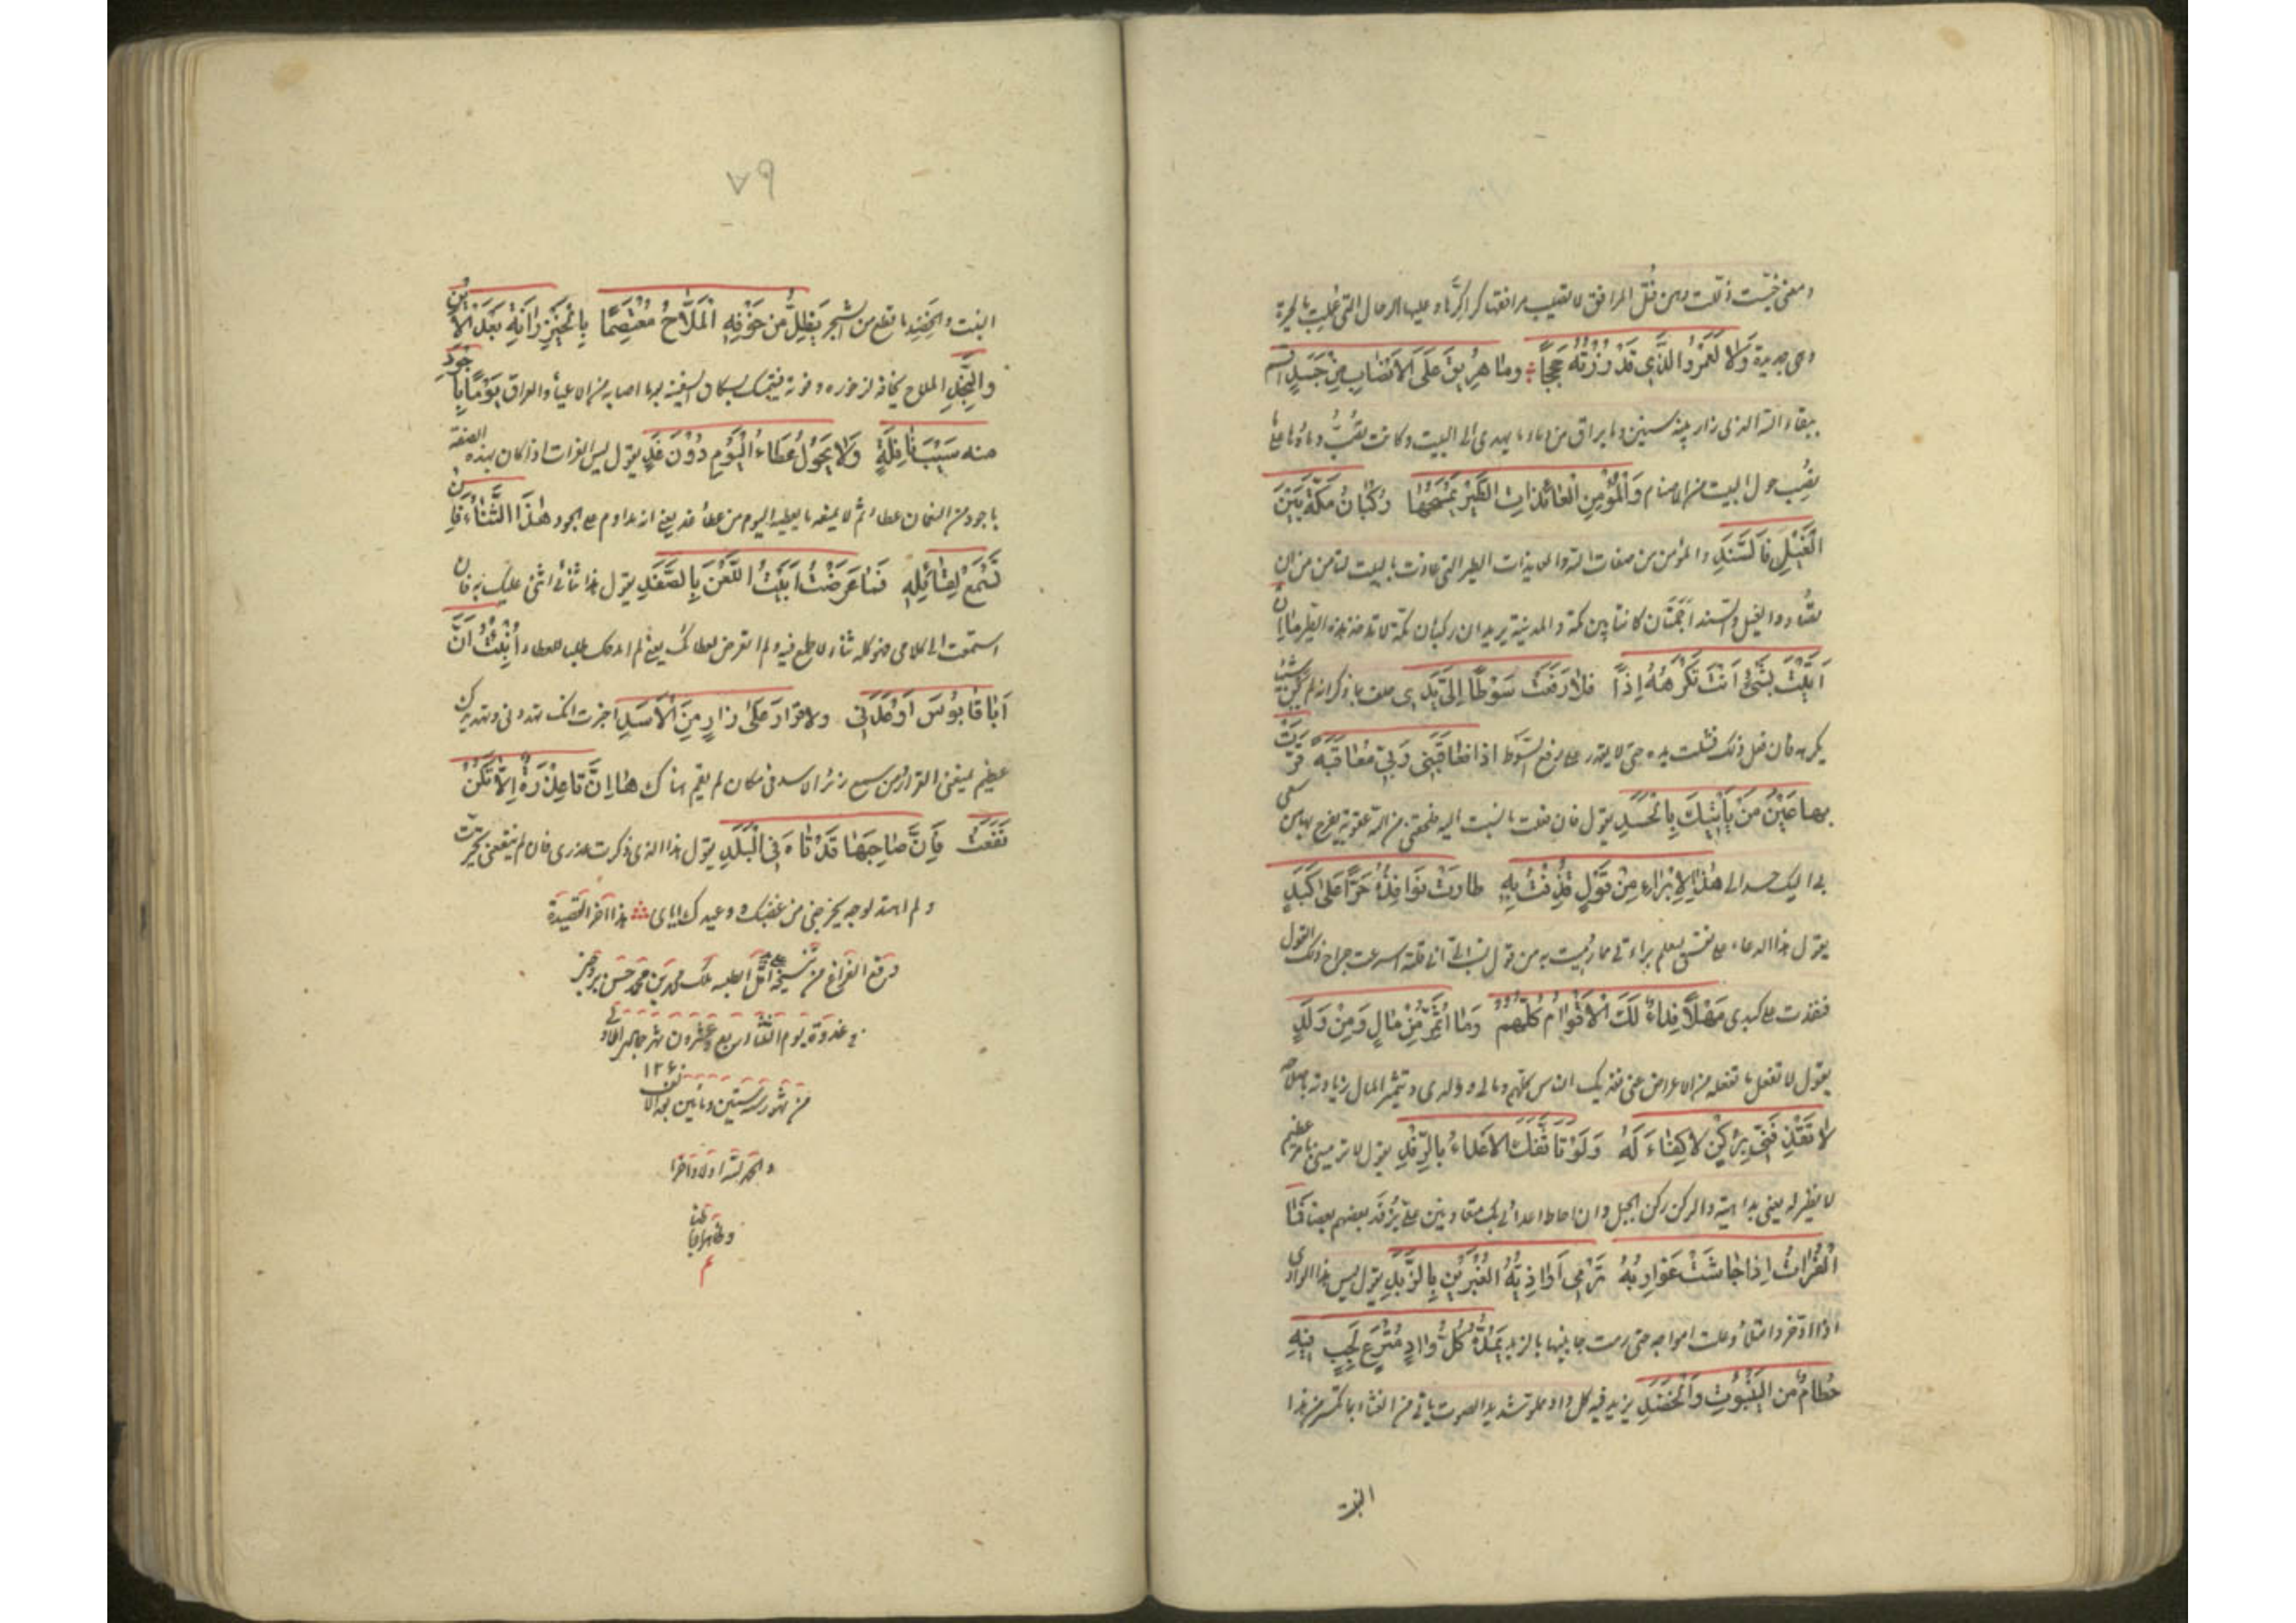 ومعنى خيست ذللت وهن فتل المرافق لا يصيب مرافقها كراكرها وعليها الرحال التي عملت بالحيرة
وهي جديدة وَلَا لَعَمْرُ الَّذِي قَدْ زُرْتُهُ حِجَجًا وما هُرِيقَ عَلَى الْأَنْصَابِ مِنْ جَسَدٍ
ببقاء الله الذي زار بيته سنين وما يراق من دماء ما يهدى الى البيت وكانت
نصب حول البيت من الاصنام وَالْمُؤْمِنِ الْعَائِذَاتِ الطَّيْرَ يَمْسَحُهَا رُكْبَانُ مَكَّةَ بَيْنَ
الْغَيْلِ فَالسَّنَدِ والمؤمن من صفات الله والعايذات الطير التي عاذت بالبيت لتامن من ان
تصاد والغيل والسند اجمتان كانتا بين مكة والمدينة يريد ان ركبان مكة هذه الطير مَا إِنْ
أَتَيْتُ بِشَيْءٍ أَنْتَ تَكْرَهُهُ إِذًا فَلَا رَفَعَتْ سَوْطًا إِلَيَّ يَدِي حلف بما ذكر انه لم يكن
يكرهه فان فعل ذلك فشلت يده حتى لا يقدر على رفع السوط إذًا فَعَاقَبَنِي رَبِّي مُعَاقَبَةً قَرَّتْ
بها عَيْنُ مَنْ يَأْتِيكَ بِالْحَسَدِ يقول فان فعلت ما نسبت اليه فلحقتني من الله عقوبة يفرح بها من سعى
بي اليك حسدا لي هٰذَا لِأَبْرَأَ مِنْ قَوْلٍ قُذِفْتُ بِهِ طارَتْ نَوَافِذُهُ حَرًّا عَلَى كَبِدِي
يقول هذا الدعاء على نفسي ليعلم براءتي مما رميت به من قول اني قلته اسرعت جراح ذلك القول
فنفذت على كبدي مَهْلًا فِدَاءً لَكَ الْأَقْوَامُ كُلُّهُمُ وَمَا أُثَمِّرُ مِنْ مَالٍ وَمِنْ وَلَدِ
يقول لا تفعل ما تفعله من الاعراض عني فديك الناس كلهم ومالي وولدي وتثمير المال زيادته
لَا تَقْذِفَنِّي بِرُكْنٍ لَا كِفَاءَ لَهُ وَلَوْ تَأَثَّفَكَ الْأَعْدَاءُ بِالرِّفَدِ يقول لا ترميني بامر عظيم
لا نظير له يعني بداهية والركن ركن الجبل وان احاط اعدائي بك متعاونين علي يرفد بعضهم بعضا فَمَا
الْفُرَاتُ إِذَا جَاشَتْ غَوَارِبُهُ تَرْمِي أَوَاذِيُّهُ الْعِبْرَيْنِ بِالزَّبَدِ يقول ليس هذا الوادي
اذا زخر وامتلأ وعلت امواجه حتى رمت جانبيها بالزبد يَمُدُّهُ كُلُّ وَادٍ مُتْرَعٍ لَجِبٍ فِيهِ
حُطَامٌ من الْيَنْبُوتِ وَالْخَضَدِ يزيد فيه كل واد مملو شديد الصوت ياتي من الغثاء بما تكسر من هذا
النبت
٧٩
النبت والخضد ما قطع من الشجر يَظَلُّ مِنْ خَوْفِهِ الْمَلَّاحُ مُعْتَصِمًا بِالْخَيْزُرَانَةِ بَعْدَ الْأَيْنِ
وَالنَّجَدِ الملاح يخافه فيتمسك بسكان السفينة لما اصابه من الاعياء والعرق يَوْمًا بِأَجْوَدَ
منه سَيْبَ نَافِلَةٍ وَلَا يَحُولُ عَطَاءُ الْيَوْمِ دُونَ غَدِ يقول ليس الفرات اذا كان بهذه الصفة
باجود من النعمان عطاء ثم لا يمنعه ما يعطيه اليوم من عطاء غد يعني انه مداوم على الجود هٰذَا الثَّنَاءُ فَإِنْ
تَسْمَعْ لِقَائِلِهِ فَمَا عَرَضْتُ أَبَيْتَ اللَّعْنَ بِالصَّفَدِ يقول هذا ثنائي اثني عليك به فان
استمعت الى كلامي فهو كله ثناء لا طمع فيه ولم اتعرض لعطائك يعني لم امدحك لطلب العطاء أُنْبِئْتُ أَنَّ
أَبَا قَابُوسَ أَوْعَدَنِي ولا قَرَارَ عَلَى زَارٍ مِنَ الْأَسَدِ اخبرت انك تهددني وتهديدك
عظيم يمنعني القرار ومن سمع زئر الاسد في مكان لم يقم هناك هَا إِنَّ تَا عِذْرَةٌ إِلَّا تَكُنْ
نَفَعَتْ فَإِنَّ صَاحِبَهَا قَدْ تَاهَ فِي الْبَلَدِ يقول هذا الذي ذكرت عذري فان لم ينفعني تحيرت
ولم اهتد لوجه يخرجني من غضبك ووعيدك اياي هذا آخر القصيدة
وقع الفراغ من نسخه على اقل الطلبه محمد بن محمد حسن
في غدوة يوم الثلثاء سابع وعشرون شهر جمادى
من شهور سنة ستين ومأتين بعد الالف ١٢٦٠
والحمد لله اولا وآخرا
وظاهرا وباطنا
م